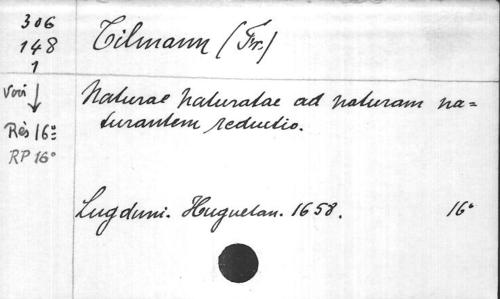 306
148
1
Voir
Rés 16°
RP 16°
Tilmann (Fr.)
Naturae naturatae ad naturam na=
turantem reductio.
Lugduni. Huguetan. 1658. 16°